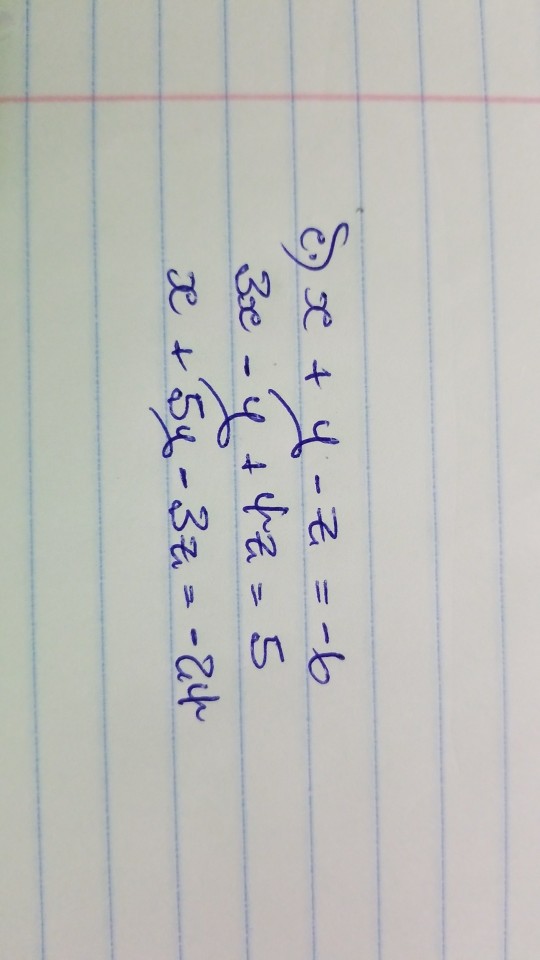 c) x + y - z = -6
3x - y + 4z = 5
x + 5y - 3z = -24